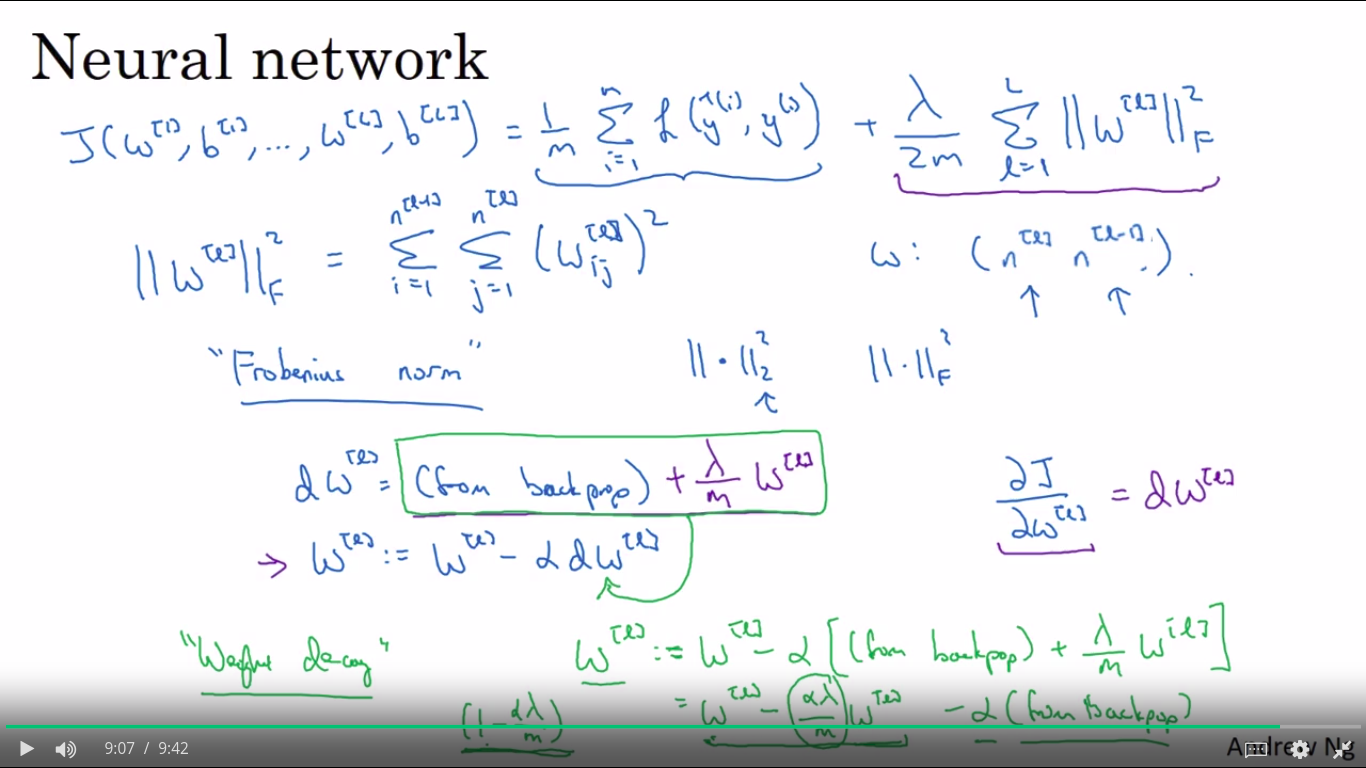 Neural network
J(w^[1], b^[1], ..., w^[L], b^[L]) = 1/m Σ_{i=1}^{n} L(ŷ^(i), y^(i)) + λ/2m Σ_{l=1}^{L} ||w^[l]||_F^2
||w^[l]||_F^2 = Σ_{i=1}^{n^[l-1]} Σ_{j=1}^{n^[l]} (w_ij^[l])^2 w: (n^[l] n^[l-1]).
↑ ↑
"Frobenius norm" ||·||_2^2 ||·||_F^2
↑
dw^[l] = (from backprop) + λ/m w^[l] ∂J/∂w^[l] = dw^[l]
→ w^[l] := w^[l] - α dw^[l]
"Weight decay" w^[l] := w^[l] - α[(from backprop) + λ/m w^[l]]
(1 - αλ/m) = w^[l] - (αλ/m) w^[l] - α(from backprop)
9:07 / 9:42 Andrew Ng